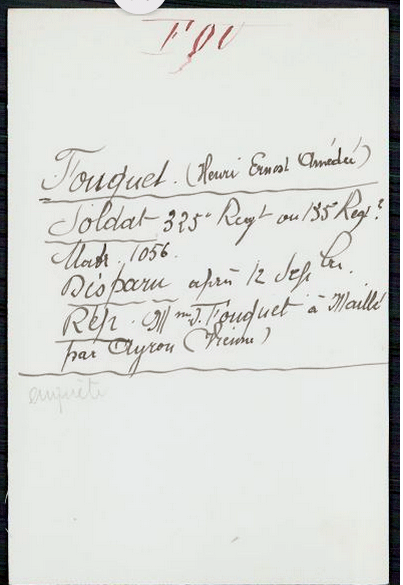 FOU
Fouquet. (Henri Ernest Amédée)
Soldat 325e Regt ou 135 Regt?
Matr. 1056.
Disparu après 12 Septbre.
Rép. Mme J. Fouquet à Maillé
par Ayron (Vienne)
enquête